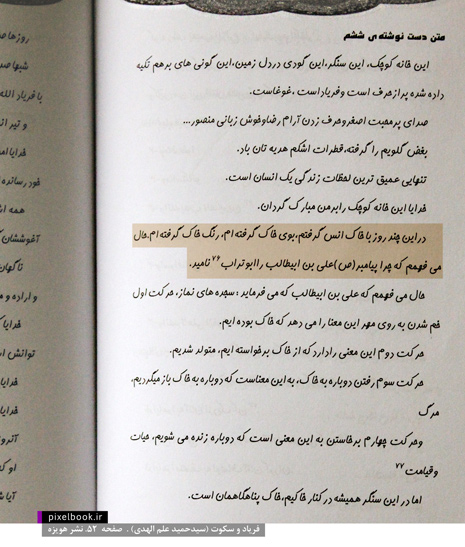 متن دست نوشته‌ی ششم
این خانه کوچک، این سنگر، این گودی در دل زمین، این گونی های بر هم تکیه
داده شده پر از حرف است و فریاد است، غوغاست.
صدای پر محبت اصغر و حرف زدن آرام رضا و خوش زبانی منصور...
بغض گلویم را گرفته، قطرات اشکم هدیه تان باد.
تنهایی عمیق ترین لحظات زندگی یک انسان است.
خدایا این خانه کوچک را بر من مبارک گردان.
در این چند روز با خاک انس گرفتم، بوی خاک گرفته ام، رنگ خاک گرفته ام. حال
می فهمم که چرا پیامبر (ص) علی بن ابیطالب را ابوتراب ۷۶ نامید.
حال می فهمم که علی بن ابیطالب که می فرماید: سجده های نماز، حرکت اول
خم شدن به روی مهر این معنا را می دهد که خاک بوده ایم.
حرکت دوم این معنی را دارد که از خاک برخاسته ایم، متولد شدیم.
حرکت سوم رفتن دوباره به خاک، به این معناست که دوباره به خاک باز میگردیم،
مرگ
و حرکت چهارم برخاستن به این معنی است که دوباره زنده می شویم، حیات
و قیامت ۷۷
اما در این سنگر همیشه در کنار خاکیم، خاک پناهگاهمان است.
روزها
شبها
با فریاد الله
و تیر
خدایا
خود رسانده
همه
آغوششان
ناگهان
و اراده و
خدایا
توانش
خدایا
خدایا
او که
pixelbook.ir
فریاد و سکوت (سیدحمید علم الهدی) . صفحه ۵۲. نشر هویزه